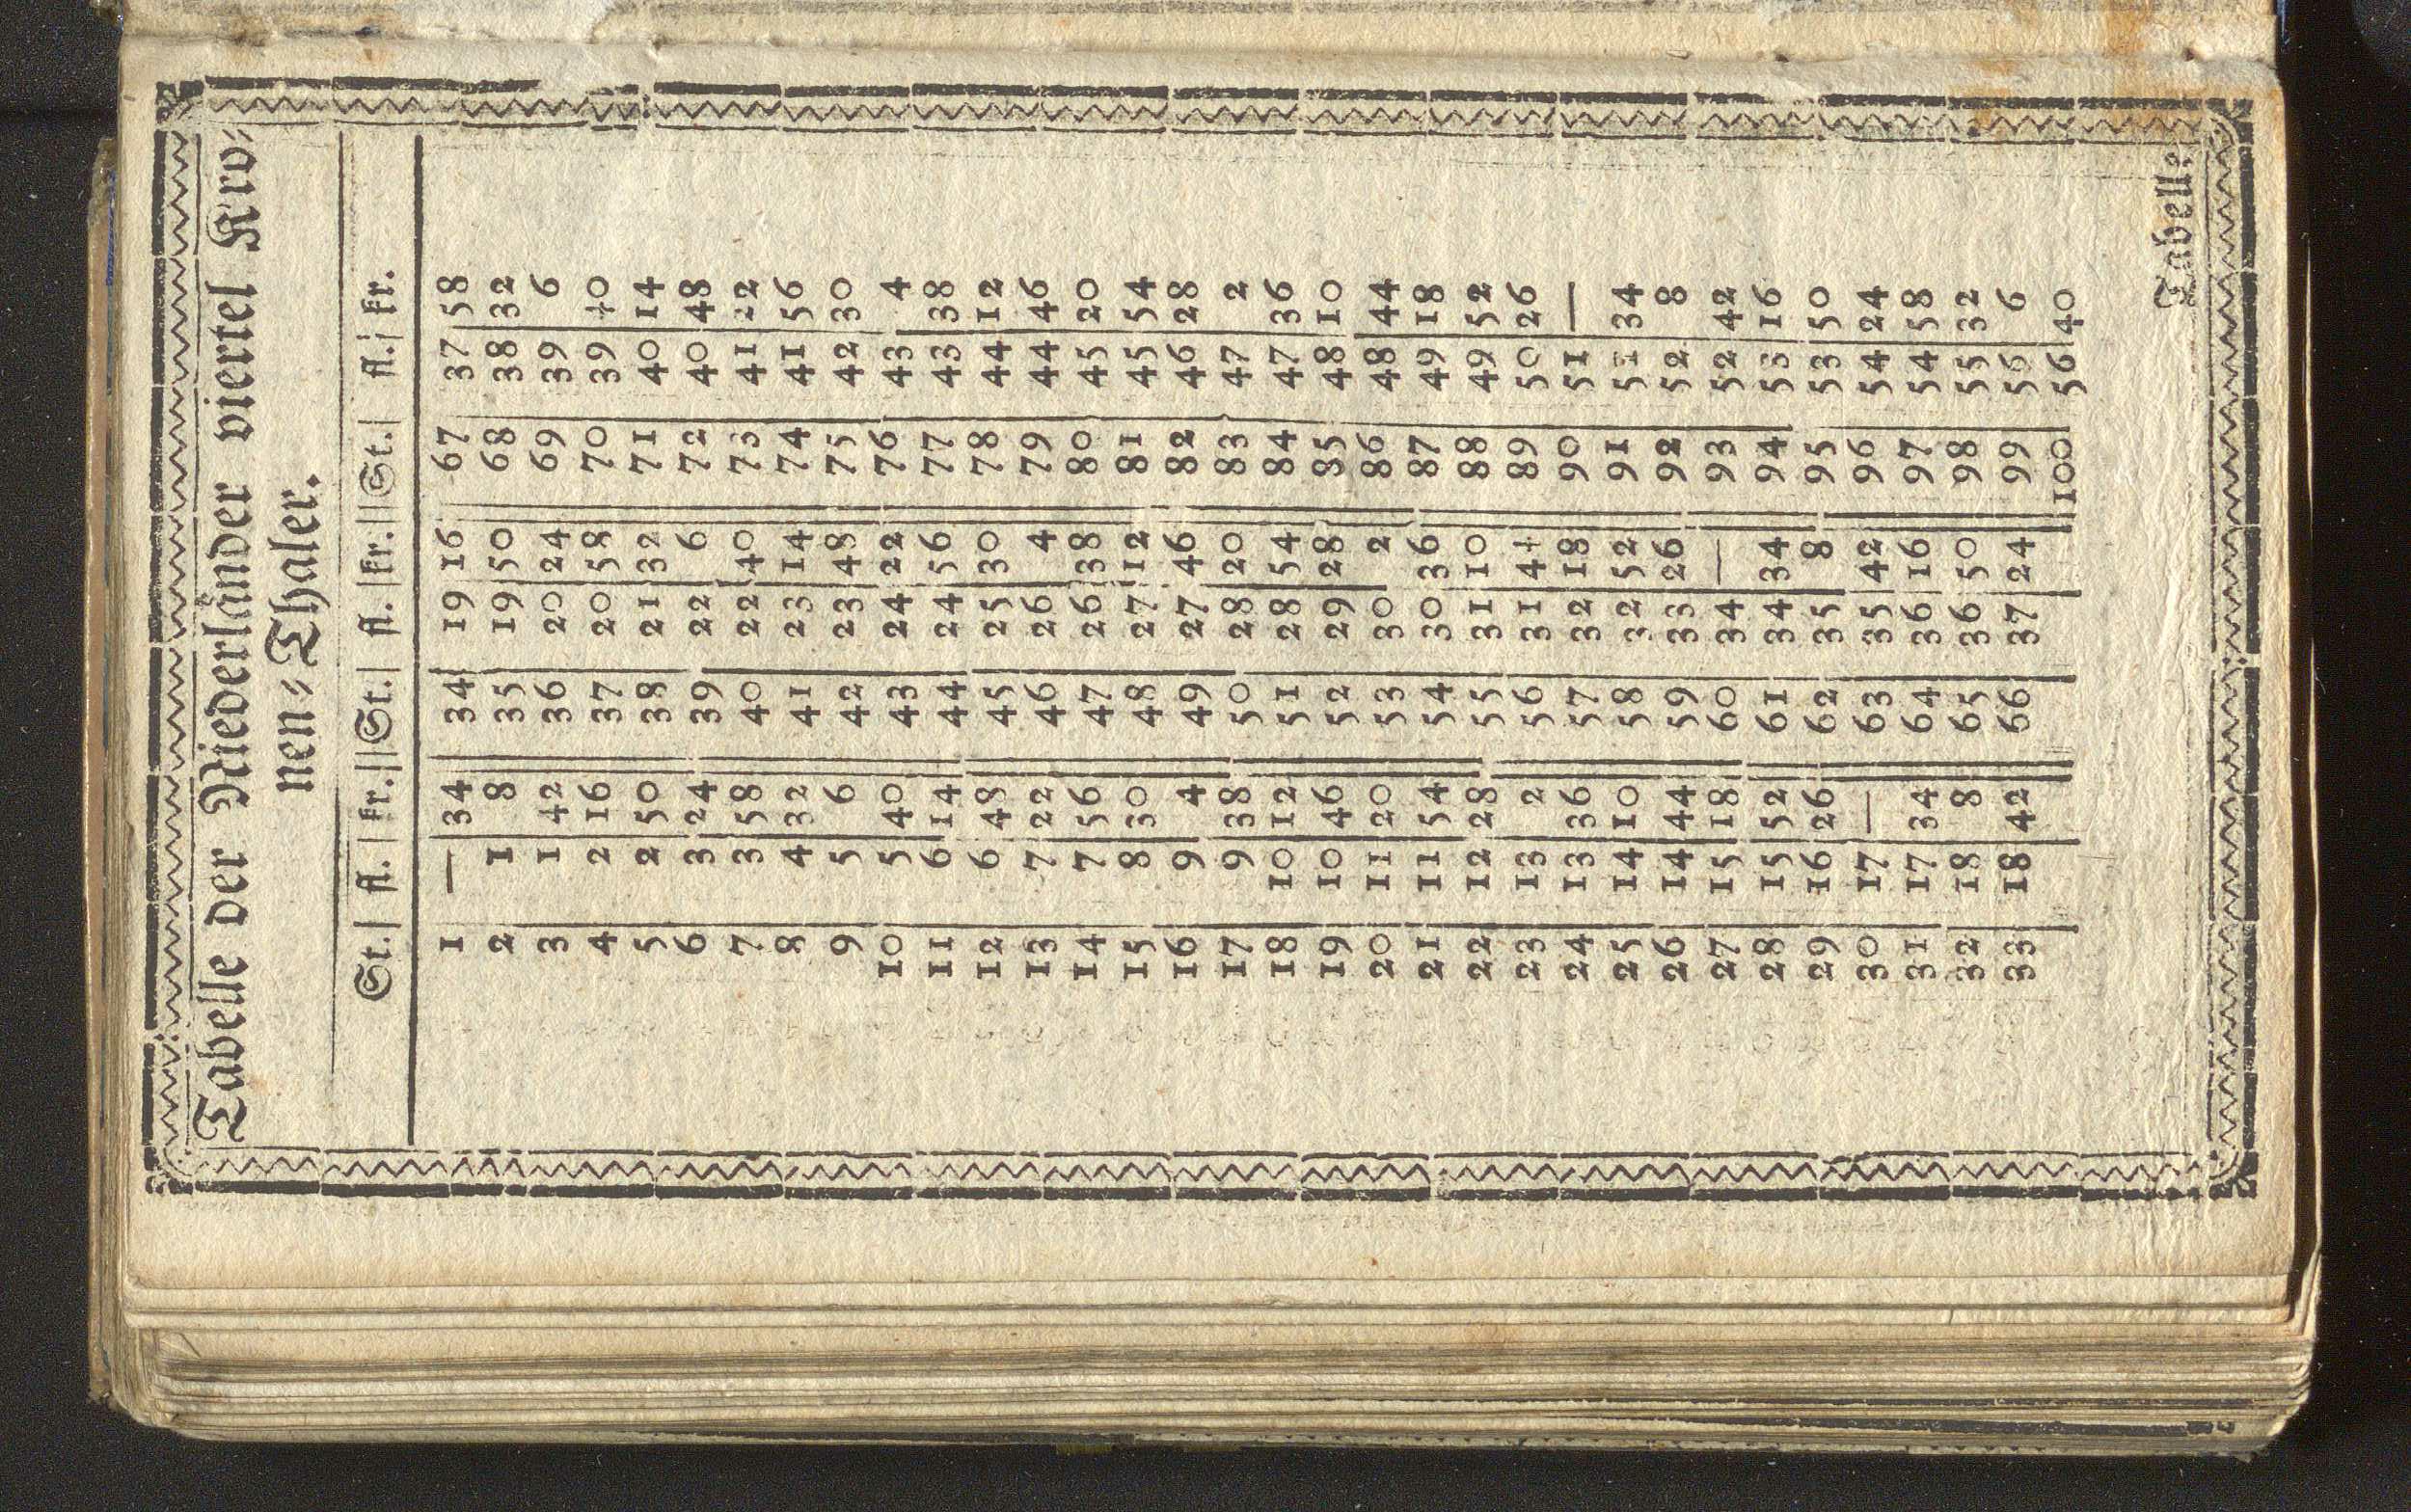 Tabelle der Niederländer viertel Kro⸗
nen⸗Thaler.
St.| fl. | kr.||St.| fl. |kr.||St.| fl.| kr.
1 — 34 34 19 16 67 37 58
2 1 8 35 19 50 68 38 32
3 1 42 36 20 24 69 39 6
4 2 16 37 20 58 70 39 40
5 2 50 38 21 32 71 40 14
6 3 24 39 22 6 72 40 48
7 3 58 40 22 40 73 41 22
8 4 32 41 23 14 74 41 56
9 5 6 42 23 48 75 42 30
10 5 40 43 24 22 76 43 4
11 6 14 44 24 56 77 43 38
12 6 48 45 25 30 78 44 12
13 7 22 46 26 4 79 44 46
14 7 56 47 26 38 80 45 20
15 8 30 48 27 12 81 45 54
16 9 4 49 27 46 82 46 28
17 9 38 50 28 20 83 47 2
18 10 12 51 28 54 84 47 36
19 10 46 52 29 28 85 48 10
20 11 20 53 30 2 86 48 44
21 11 54 54 30 36 87 49 18
22 12 28 55 31 10 88 49 52
23 13 2 56 31 44 89 50 26
24 13 36 57 32 18 90 51 —
25 14 10 58 32 52 91 51 34
26 14 44 59 33 26 92 52 8
27 15 18 60 34 — 93 52 42
28 15 52 61 34 34 94 53 16
29 16 26 62 35 8 95 53 50
30 17 — 63 35 42 96 54 24
31 17 34 64 36 16 97 54 58
32 18 8 65 36 50 98 55 32
33 18 42 66 37 24 99 56 6
100 56 40
Tabelle